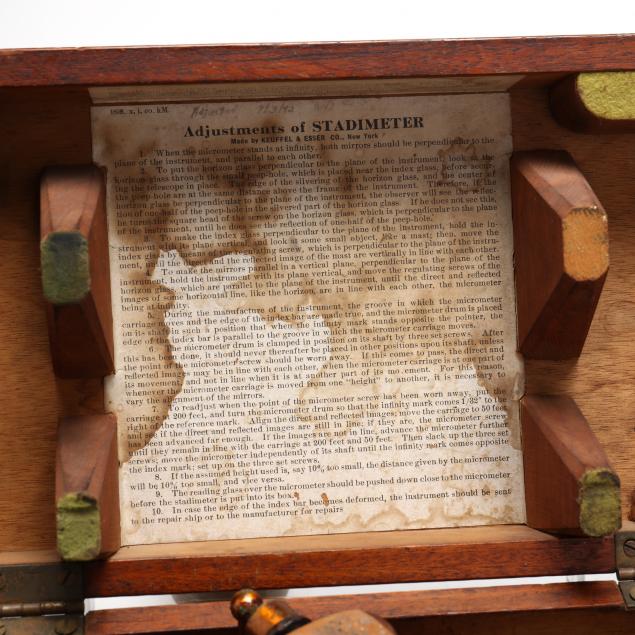 Adjusted
Adjustments of STADIMETER
Made by KEUFFEL & ESSER CO., New York
1. When the micrometer stands at infinity, both mirrors should be perpendicular to the
plane of the instrument, and parallel to each other.
2. To put the horizon glass perpendicular to the plane of the instrument, look at the
horizon glass through the small peep-hole, which is placed near the index glass, before secur-
ing the telescope in place. The edge of the silvering of the horizon glass, and the center of
the peep-hole are at the same distance above the frame of the instrument. Therefore, if the
horizon glass be perpendicular to the plane of the instrument, the observer will see the reflec-
tion of one-half of the peep-hole in the silvered part of the horizon glass. If he does not see this,
he turns the square head of the screw in the horizon glass, which is perpendicular to the plane
of the instrument, until he does see the reflection of one-half of the peep-hole.
3. To make the index glass perpendicular to the plane of the instrument, hold the in-
strument with its plane vertical, and look at some small object, like a mast; then, move the
index glass by the regulating screw, which is perpendicular to the plane of the instru-
ment, until the direct and reflected image of the mast are vertically in line with each other.
To make the mirrors parallel in a vertical plane, perpendicular to the plane of the
instrument, hold the instrument with its plane vertical, and move the regulating screws of the
horizon glass which are parallel to the plane of the instrument, until the direct and reflected
images of some horizontal line, like the horizon, are in line with each other, the micrometer
being at infinity.
5. During the manufacture of the instrument, the groove in which the micrometer
carriage moves and the edge of the index bar are made true, and the micrometer drum is placed
on its shaft in such a position that when its infinity mark stands opposite the pointer, the
edge of the index bar is parallel to the groove in which the micrometer carriage moves.
The micrometer drum is clamped in position on its shaft by three set screws. After
this has been done, it should never thereafter be placed in other positions upon its shaft, unless
the point of the micrometer screw should be worn away. If this comes to pass, the direct and
reflected images may be in line with each other, when the micrometer carriage is at one part of
its movement, and not in line when it is at another part of its movement. For this reason,
whenever the micrometer carriage is moved from one "height" to another, it is necessary to
vary the alignment of the mirrors.
To readjust when the point of the micrometer screw has been worn away, put the
carriage at 200 feet, and turn the micrometer drum so that the infinity mark comes 1-32" to the
right of the reference mark. Align the direct and reflected images; move the carriage to 50 feet
and see if the direct and reflected images are still in line; if they are, the micrometer screw
has been advanced far enough. If the images are not in line, advance the micrometer further
and then try the carriage at 200 feet and 50 feet. Then slack up the three set
screws; move the micrometer independently of its shaft until the infinity mark comes opposite
the index mark; set up on the three set screws.
8. If the assumed height used is, say 10% too small, the distance given by the micrometer
will be 10% too small, and vice versa.
9. The reading glass over the micrometer should be pushed down close to the micrometer
before the stadimeter is put into its box.
10. In case the edge of the index bar becomes deformed, the instrument should be sent
to the repair ship or to the manufacturer for repairs